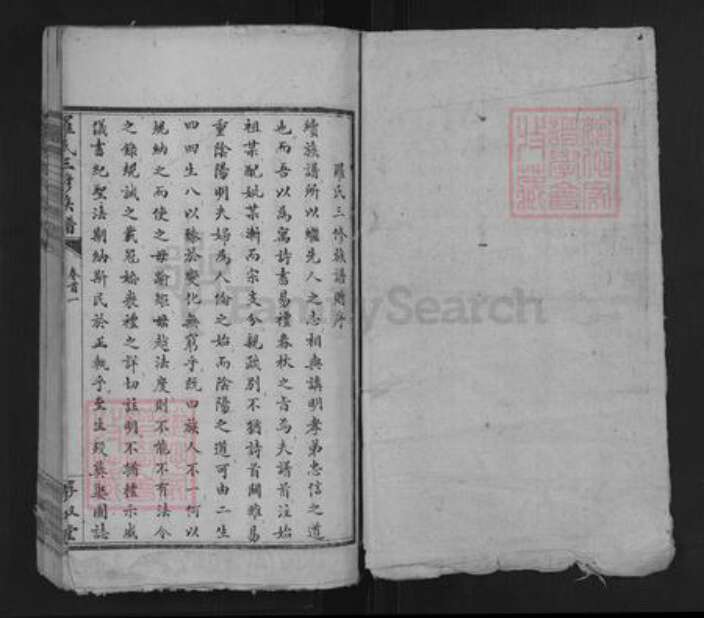 羅氏三修族譜贈序
續族譜所以繼先人之志相與講明孝弟忠信之道
也而吾以為寓詩書易禮春秋之旨焉夫譜首注始
祖某配妣某漸而宗支分親疏別不猶詩首關雎易
重陰陽明夫婦為人倫之始而陰陽之道可由二生
四四生八以臻於變化無窮乎既曰族人不一何以
規納之而使之毋踰矩毋越法度則不能不有法令
之錄規誡之載冠婚喪禮之詳切註明不猶禮示威
儀書紀聖法期納斯民於正軌乎至生歿葬與圖誌
羅氏三修族譜
卷首一
FamilySearch